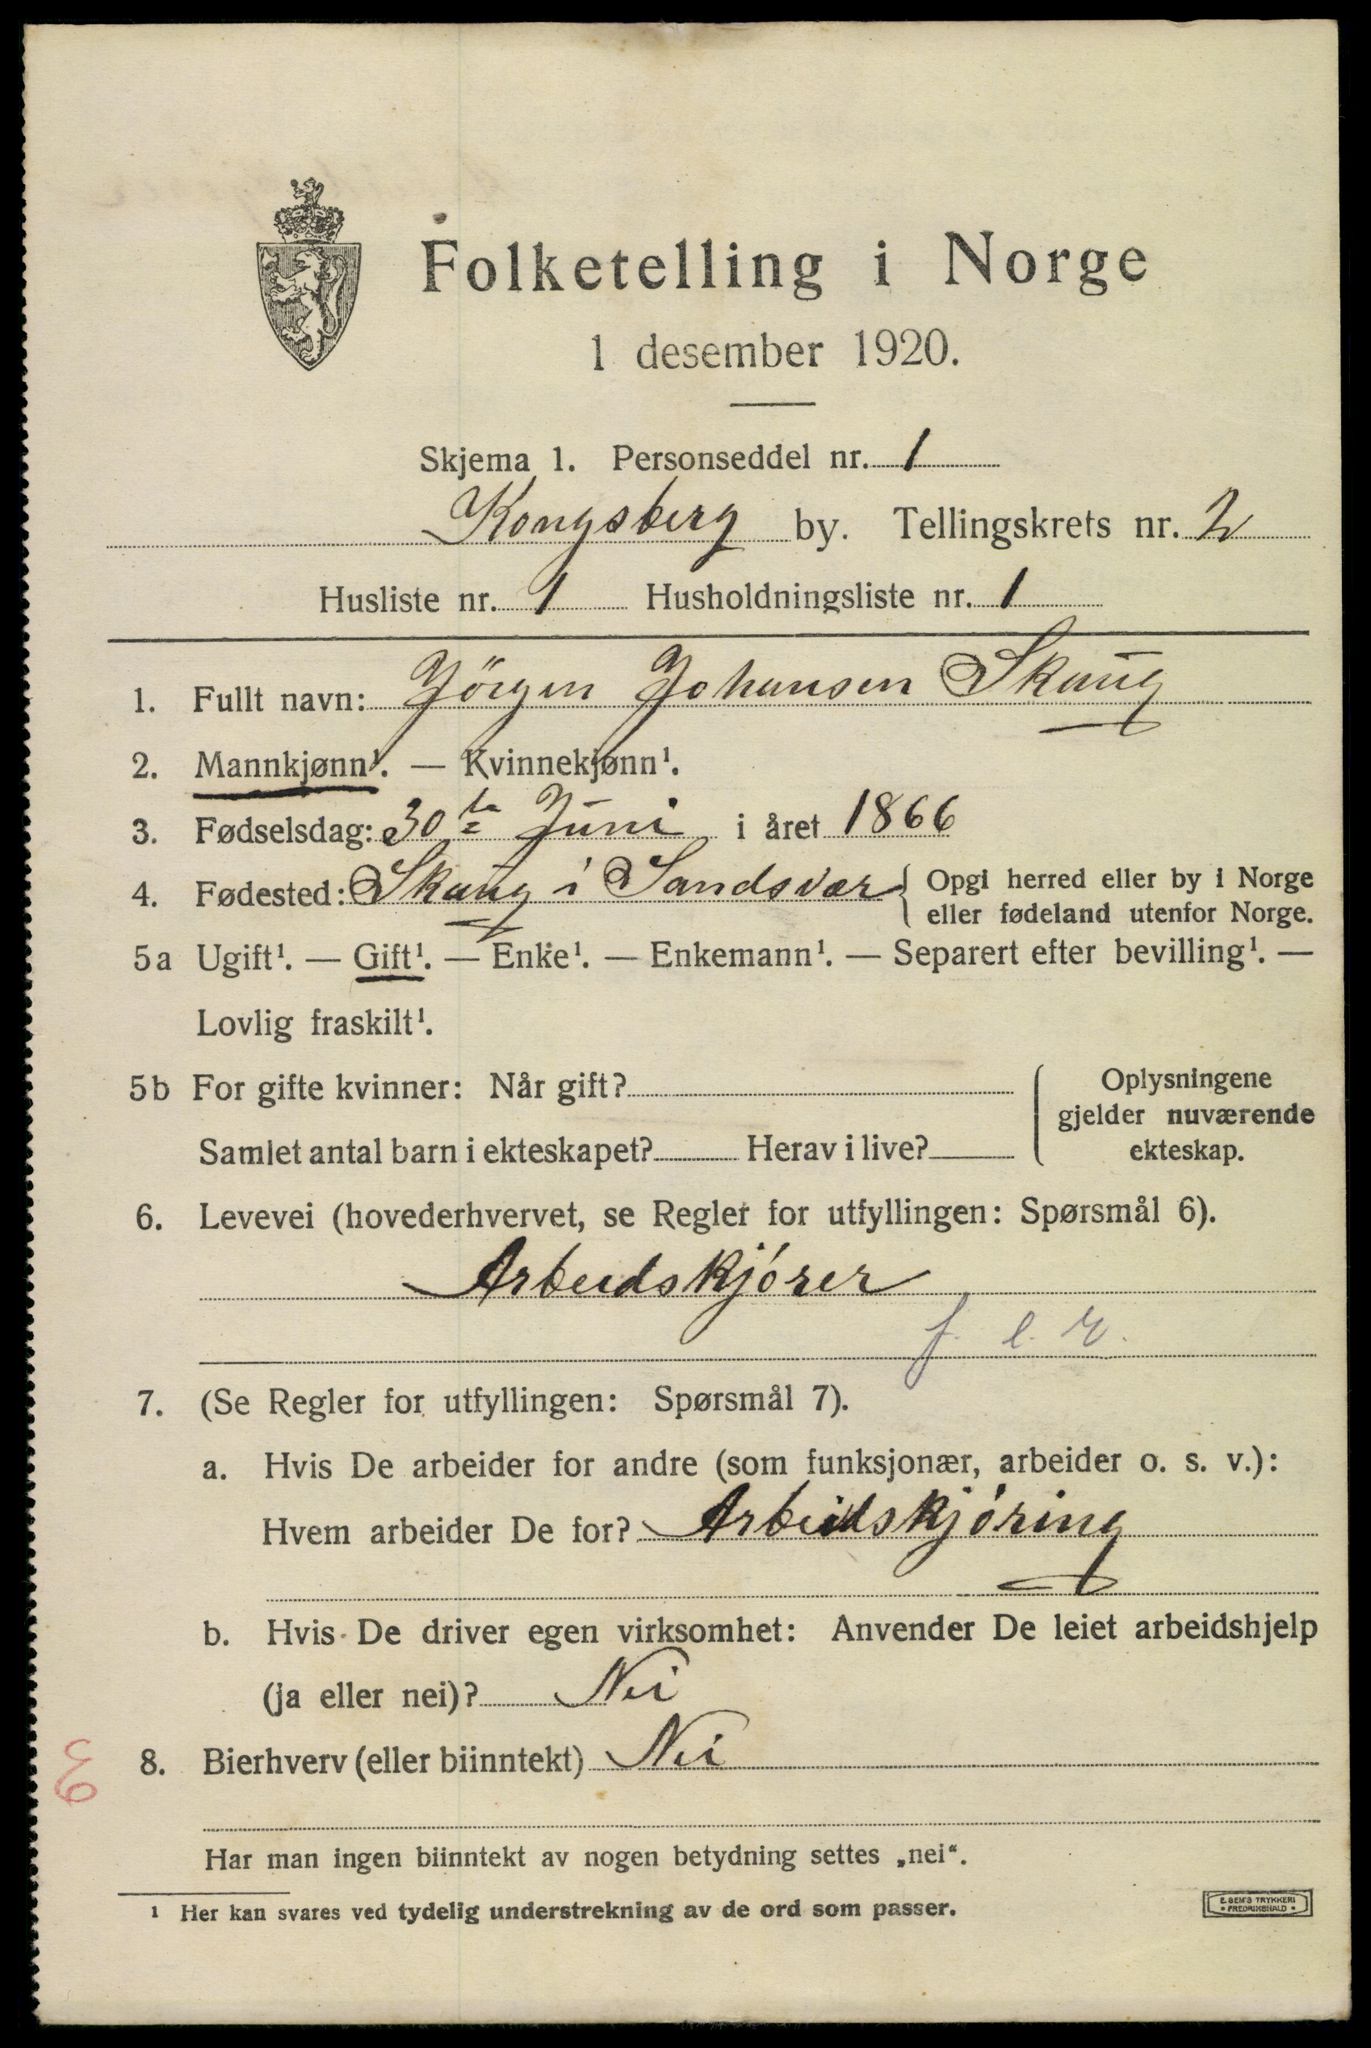 Folketelling i Norge
1 desember 1920.
Skjema 1. Personseddel nr. 1
Kongsberg by. Tellingskrets nr. 2
Husliste nr. 1 Husholdningsliste nr. 1
1. Fullt navn: Jörgen Johansen Skaug
2. Mannkjønn¹. — Kvinnekjønn¹.
3. Fødselsdag: 30te Juni i året 1866
4. Fødested: Skaug i Sandsvær { Opgi herred eller by i Norge
eller fødeland utenfor Norge.
5a Ugift¹. — Gift¹. — Enke¹. — Enkemann¹. — Separert efter bevilling¹. —
Lovlig fraskilt¹.
5b For gifte kvinner: Når gift?
Samlet antal barn i ekteskapet? Herav i live?
Oplysningene
gjelder nuværende
ekteskap.
6. Levevei (hovederhvervet, se Regler for utfyllingen: Spørsmål 6).
Arbeidskjórer
f. l. r.
7. (Se Regler for utfyllingen: Spørsmål 7).
a. Hvis De arbeider for andre (som funksjonær, arbeider o. s. v.):
Hvem arbeider De for? Arbeidskjóring
b. Hvis De driver egen virksomhet: Anvender De leiet arbeidshjelp
(ja eller nei)? Nei
8. Bierhverv (eller biinntekt) Nei
Har man ingen biinntekt av nogen betydning settes „nei“.
¹ Her kan svares ved tydelig understrekning av de ord som passer.
E. SEM'S TRYKKERI
FREDRIKSHALD